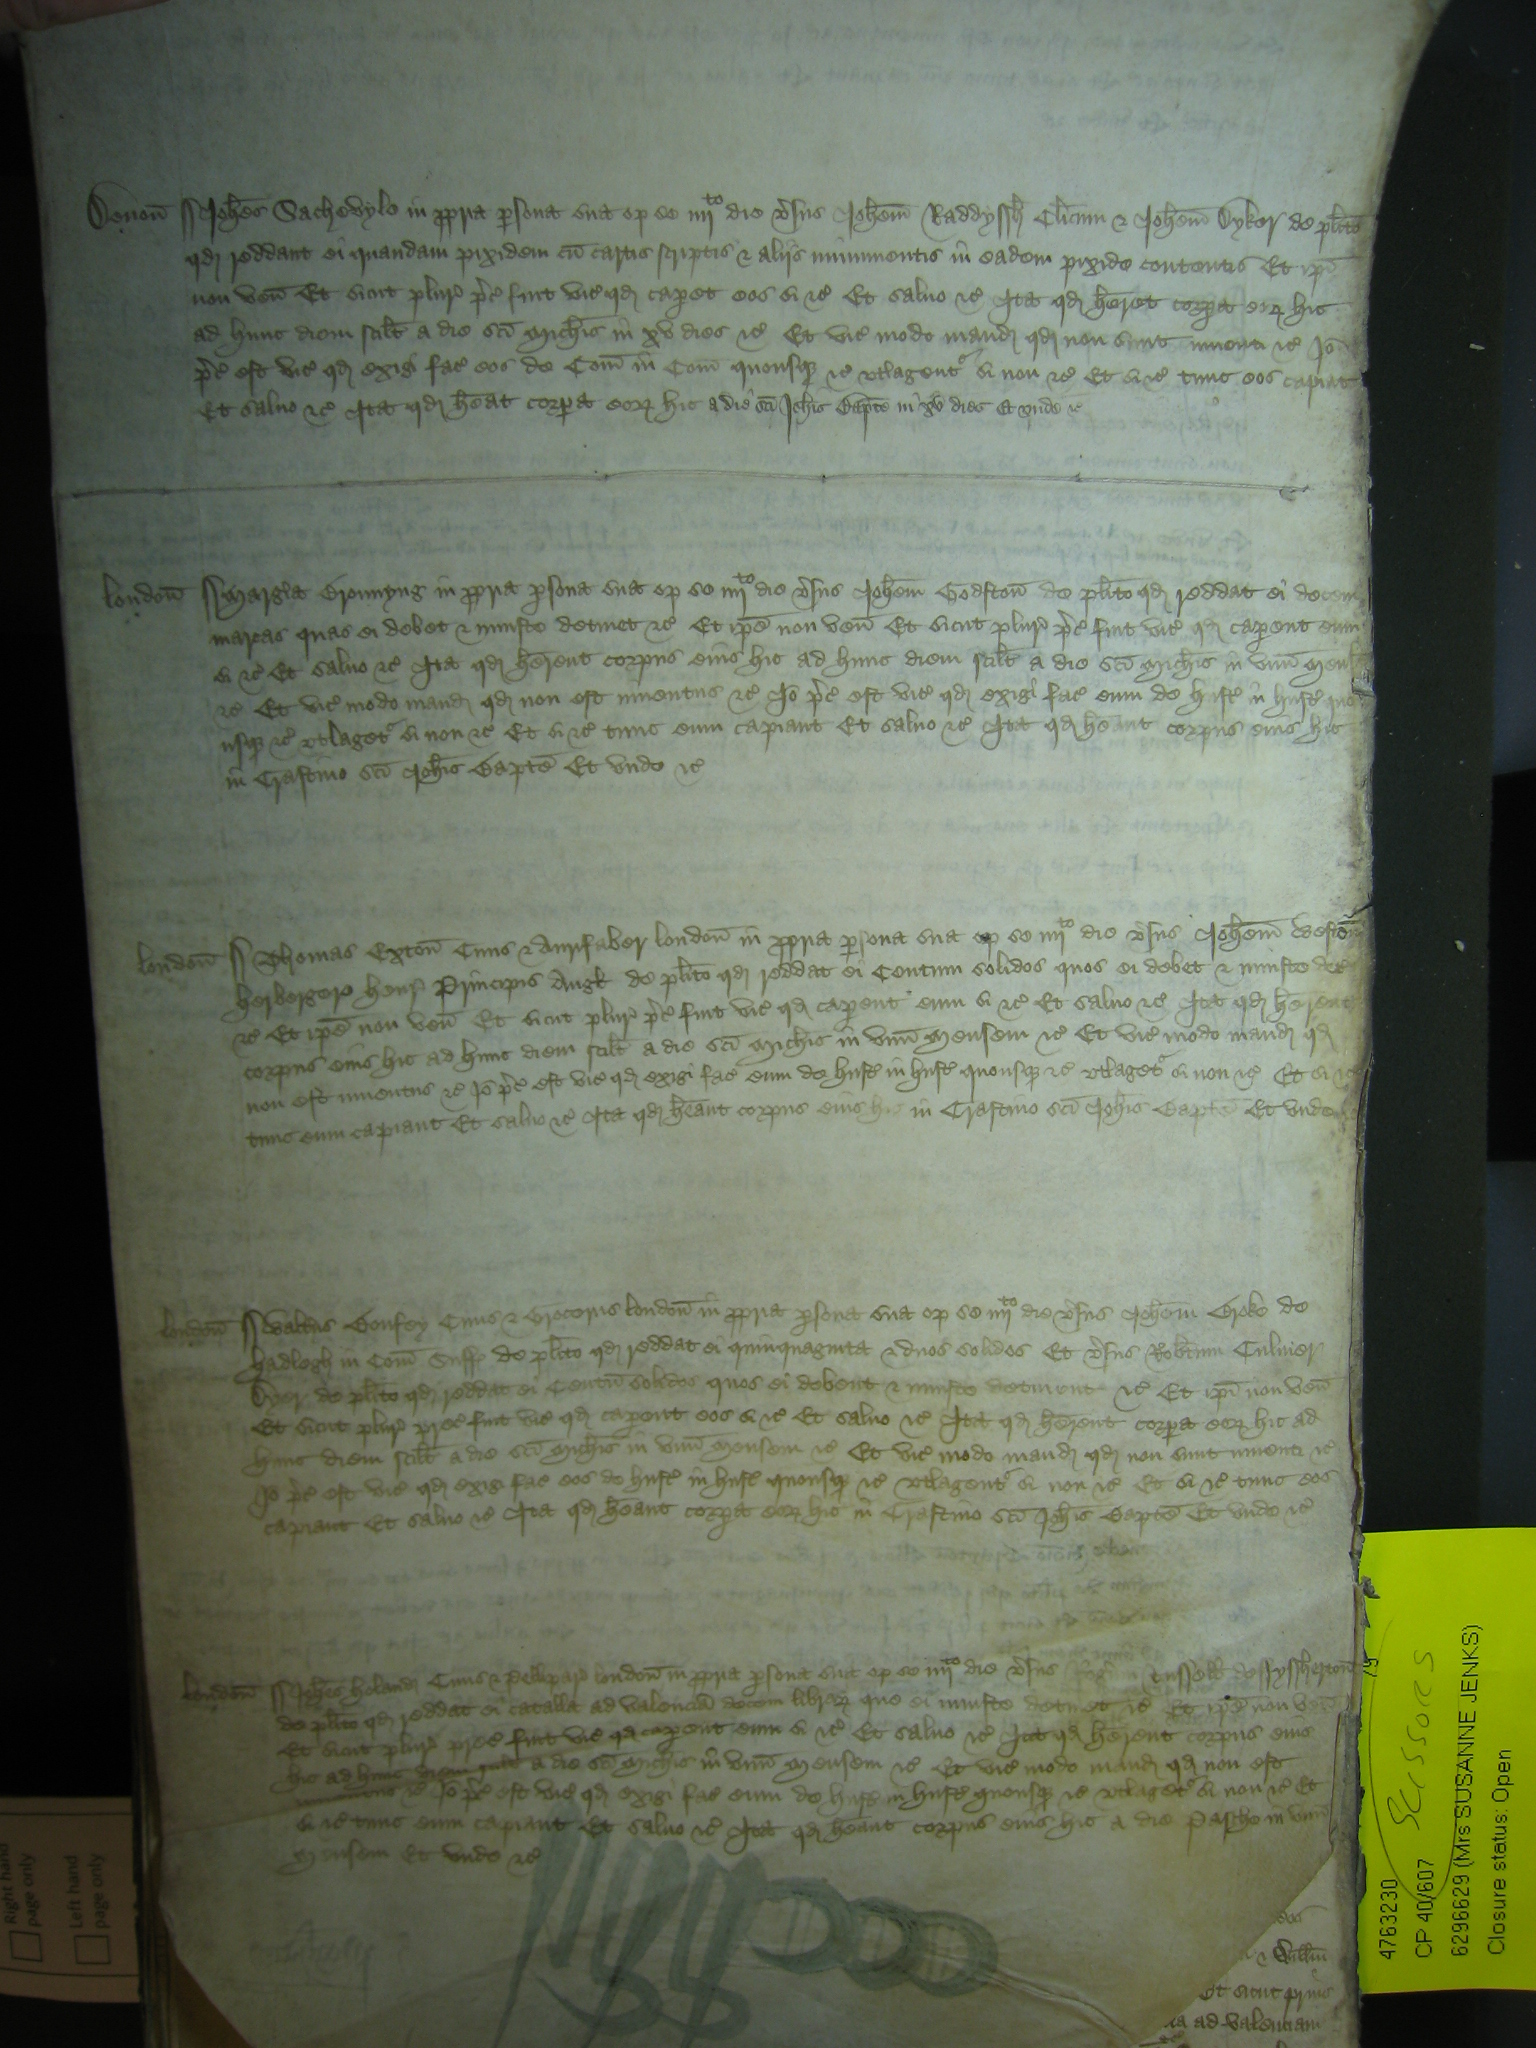 Deuon̄ Joh̄es Sachevyle in ppria psona sua op se iiijto die vsus Joh̄em Raddyssh Cl̄icum & Joh̄em Dyker de pl̄ito
qd reddant ei quandam pixidem cū cartis scriptis & aliis munimentis in eadem pixide contentis Et ip̄i
non ven̄ Et sicut plur p̄c fuit vic qd caperet eos si &c Et saluo &c Ita qd h̄eret corpa eor hic
ad hunc diem scilt a die sc̄i Mich̄is in xv dies &c Et vic modo mand qd non sunt inuenti &c Jo
p̄c est vic qd exigi fac eos de Com̄ in Com̄ quousq &c vtlagent si non &c Et si &c tunc eos capiat
Et saluo &c Ita qd h̄eat corpa eor hic a die sc̄i Joh̄is Bapt̄e in xv dies Et vnde &c
london̄ Margia Bronnyng in ppria psona sua op se iiijto die vsus Joh̄em Godston̄ de pl̄ito qd reddat ei decem
marcas quas ei debet & iniuste detinet &c Et ip̄e non ven̄ Et sicut plur p̄c fuit vic qd caperent eum
si &c Et saluo &c Ita qd h̄erent corpus eius hic ad hunc diem scilt a die sc̄i Mich̄is in vnū Mens
&c Et vic modo mand qd non est inuentus &c Jo p̄c est vic qd exigi fac eum de hust in hust quo
usq &c vtlaget si non &c Et si &c tunc eum capiant Et saluo &c Ita qd h̄eant corpus eius hic
in Crastino sc̄i Joh̄is Bapt̄e Et vnde &c
london̄ Thomas Exton̄ Ciuis & Aurifaber london̄ in ppria psona sua op se iiijto die vsus Joh̄em Weston̄
herbergere Principis Angl de pl̄ito qd reddat ei Centum solidos quos ei debet & iniuste det
&c Et ip̄e non ven̄ Et sicut plur p̄c fuit vic qd caperent eum si &c Et saluo &c Ita qd h̄erent
corpus eius hic ad hunc diem scilt a die sc̄i Mich̄is in vnū Mensem &c Et vic modo mand qd
non est inuentus &c Jo p̄c est vic qd exigi fac eum de hust in hust quousq &c vtlaget si non &c Et si &c
tunc eum capiant Et saluo &c Ita qd h̄eant corpus eius hic in Crastino sc̄i Joh̄is Bapt̄e Et vnde
london̄ Waltus Gonsey Ciuis & Grocerus london̄ in ppria psona sua op se iiijto die vsus Joh̄em Groke de
hadlegh in Com̄ Suff de pl̄ito qd reddat ei quinquaginta & duos solidos Et vsus Rob̄tum Culuier
Dyer de pl̄ito qd reddat ei Centū solidos quos ei debent & iniuste detinent &c Et ip̄i non ven̄
Et sicut plur prec fuit vic qd caperent eos si &c Et saluo &c Ita qd h̄erent corpa eor hic ad
hunc diem scilt a die sc̄i Mich̄is in vnū Mensem &c Et vic modo mand qd non sunt inuenti &c
Jo p̄c est vic qd exigi fac eos de hust in hust quousq &c vtlagent si non &c Et si &c tunc eos
capiant Et saluo &c Ita qd h̄eant corpa eor hic in Crastino sc̄i Joh̄is Bapt̄e Et vnde &c
london̄ Joh̄es holand Ciuis & Pellipar london̄ in ppria psona sua op se iiijto die vsus
de pl̄ito qd reddat ei catalla ad valenciā decem librar que ei iniuste detinet &c Et ip̄e non ven̄
Et sicut plur prec fuit vic qd caperent eum si &c Et saluo &c Ita qd h̄erent corpus eius
hic ad hunc diem scilt a die sc̄i Mich̄is in vnū Mensem &c Et vic modo mand qd non est
inuentus &c Jo p̄c est vic qd exigi fac eum de hust in hust quousq &c vtlaget si non &c Et
si &c tunc eum capiant Et saluo &c Ita qd h̄eant corpus eius hic a die Pasche in vnū
Mensem Et vnde &c
& Will̄m
Et sicut prius
ad valenciam
4763230
Scissors
CP 40/607
6296629 (Mrs SUSANNE JENKS)
Closure status: Open
Right hand
page only
Left hand
page only